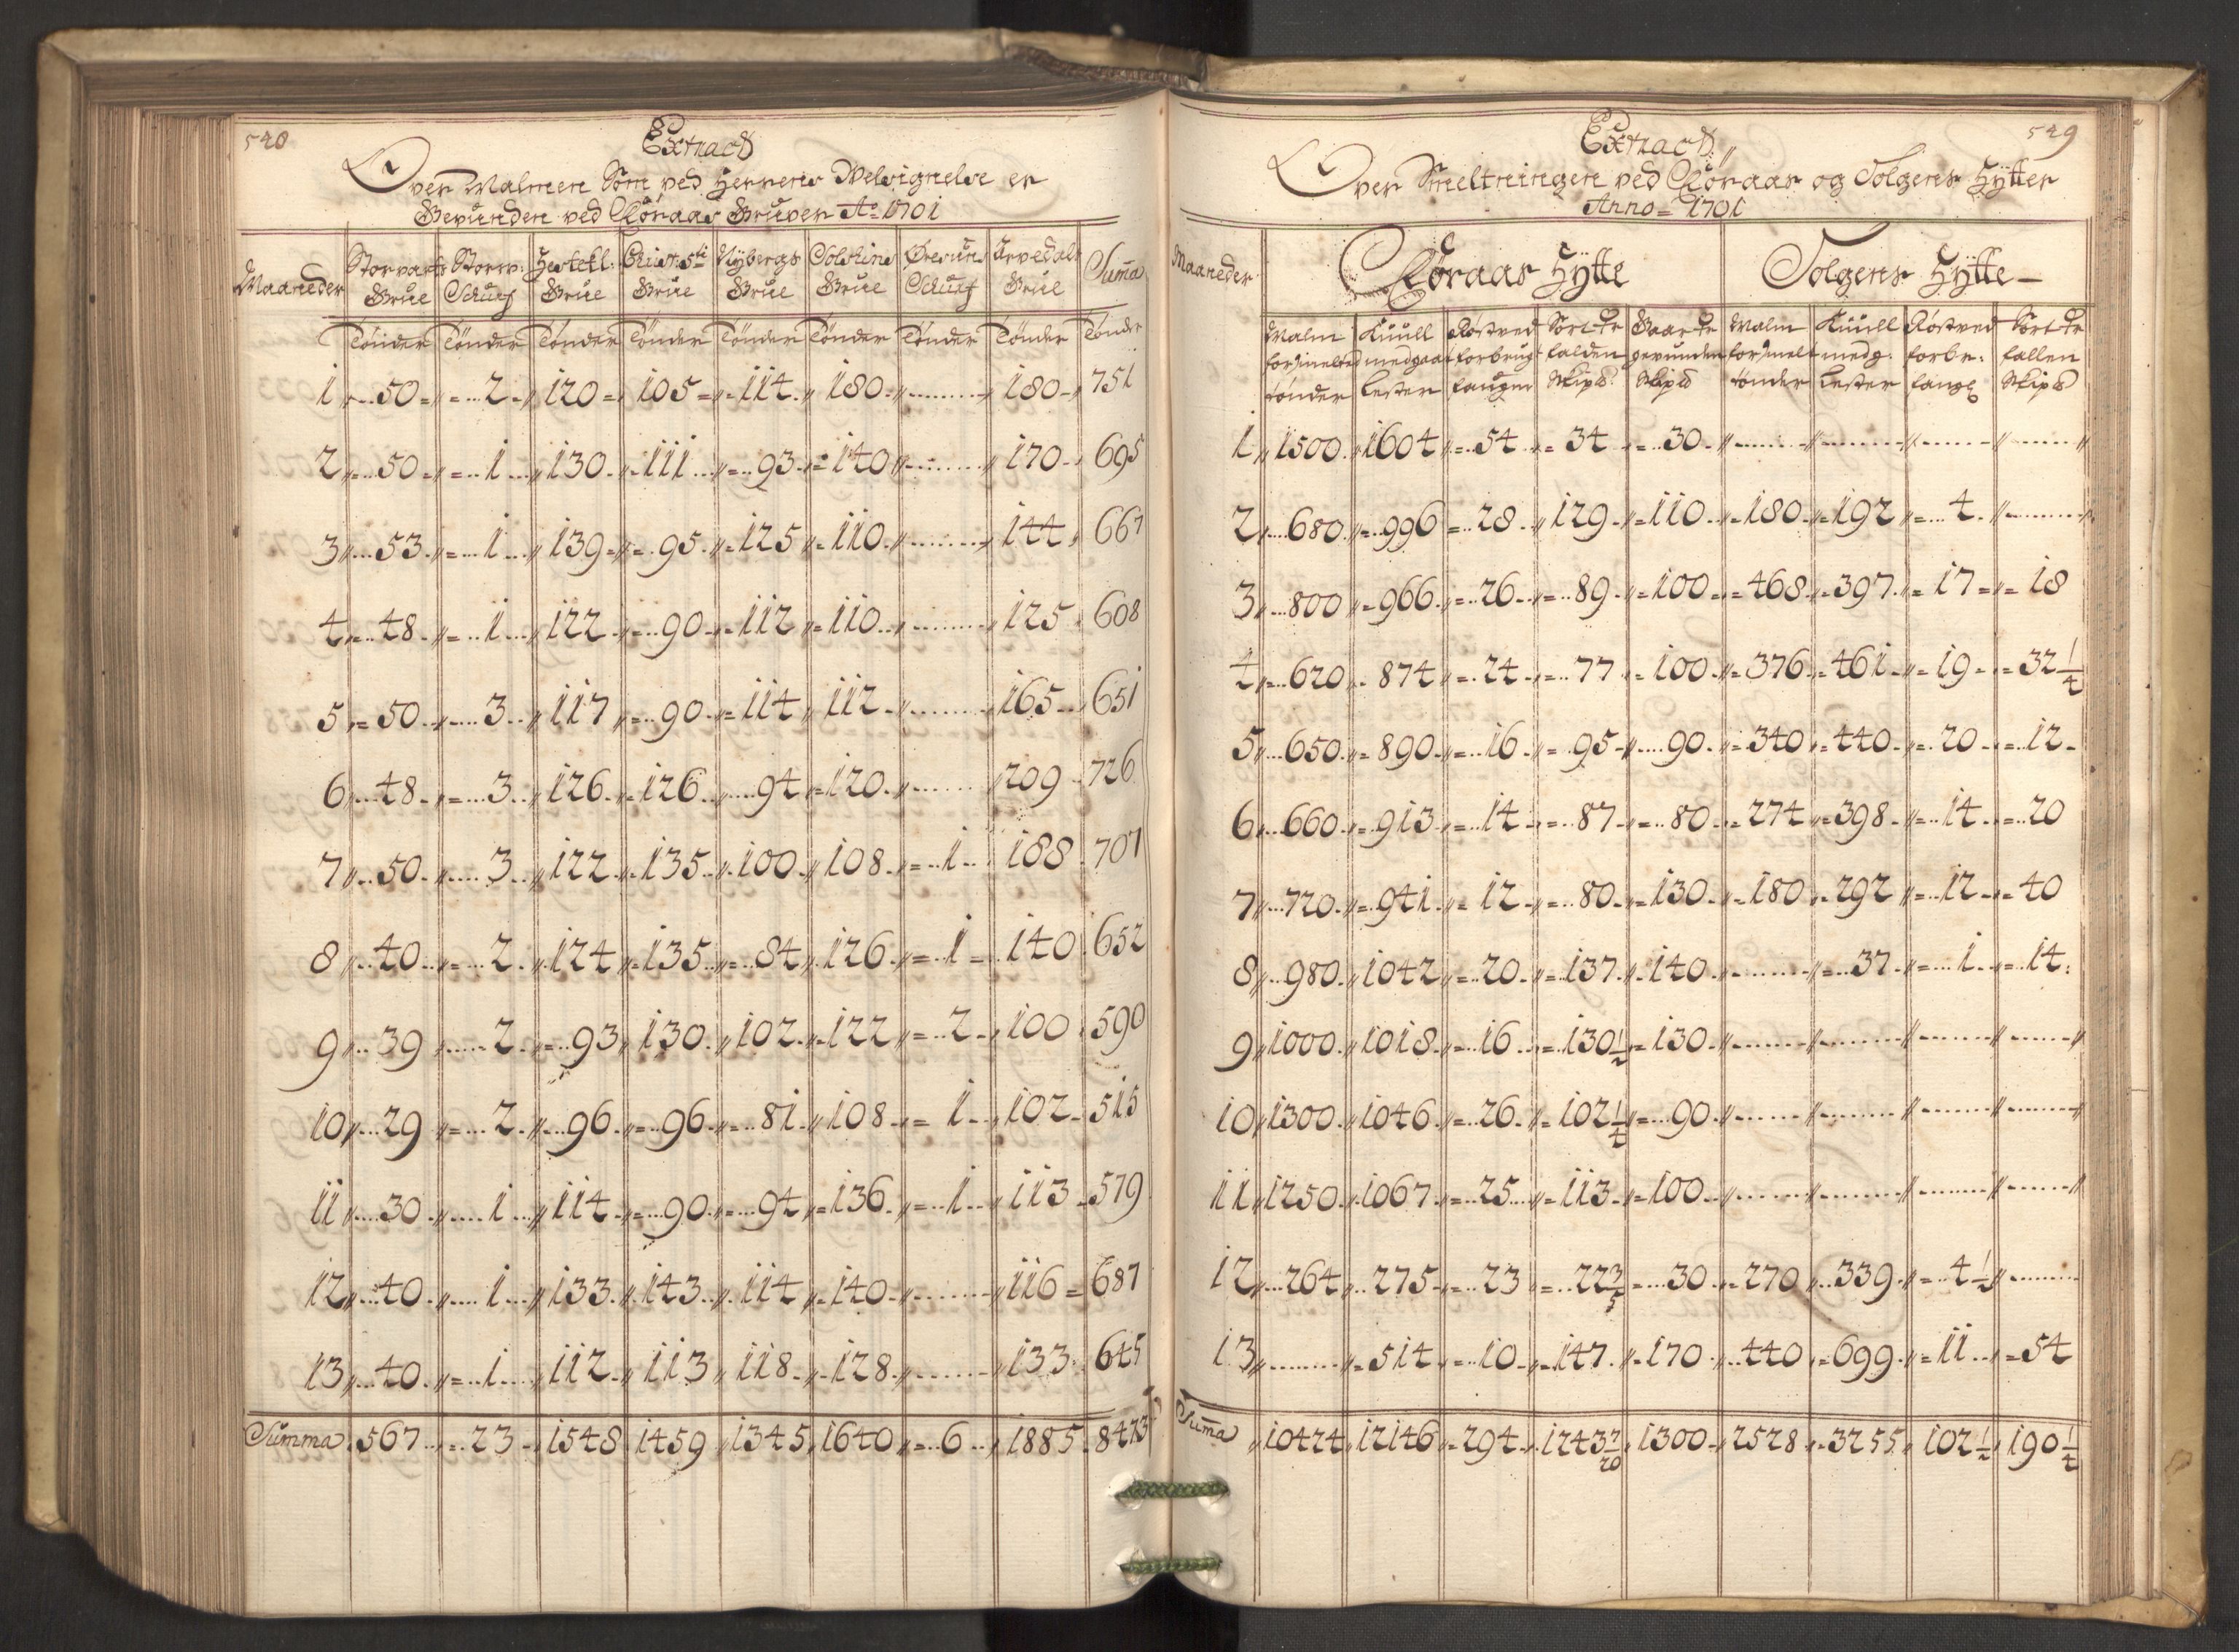 548
Extract
Over Malmen Som ved Herrens Velsignelse er
Gevunden ved Röraas Gruver Ao 1701
Maaneder Storvarts Grue Storw: Schurf Hestekl: Grue Christ: 5ti Grue Nÿbergs Grue Solskins Grue Öresuns Schurf Arvedals Grue Suma
Tönder Tönder Tönder Tönder Tönder Tönder Tönder Tönder Tönder
1 50 2 120 105 114 180 180 751
2 50 1 130 111 93 140 170 695
3 53 1 139 95 125 110 144 667
4 48 1 122 90 112 110 125 608
5 50 3 117 90 114 112 165 651
6 48 3 126 126 94 120 209 726
7 50 3 122 135 100 108 1 188 707
8 40 2 124 135 84 126 1 140 652
9 39 2 93 130 102 122 2 100 590
10 29 2 96 96 81 108 1 102 515
11 30 1 114 90 94 136 1 113 579
12 40 1 133 143 114 140 116 687
13 40 1 112 113 118 128 133 645
Summa 567 23 1548 1459 1345 1640 6 1885 8473
549
Extract
Over Smeltningen ved Röraas og Tolgens Hÿtter
Anno 1701
Maaneder Röraas Hÿtte Tolgens Hÿtte
Malm Kuull Röstved Sort Gaar Malm Kuull Röstved Sort
forsmelted medgaaet forbrugt falden gevunden forsmelt medg: forbr: fallen
tönder Lester faugner Skip tb Skip tb tönder Lester faugn Skip tb
1 1500 1604 54 34 30
2 680 996 28 129 110 180 192 4
3 800 966 26 89 100 468 397 17 18
4 620 874 24 77 100 376 461 19 32 1/4
5 650 890 16 95 90 340 440 20 12
6 660 913 14 87 80 274 398 14 20
7 720 941 12 80 130 180 292 12 40
8 980 1042 20 137 140 37 1 14
9 1000 1018 16 130 1/2 130
10 1300 1046 26 102 1/4 90
11 1250 1067 25 113 100
12 264 275 23 22 3/5 30 270 339 4 1/2
13 514 10 147 170 440 699 11 54
Suma 10424 12146 294 1243 7/20 1300 2528 3255 102 1/2 190 1/4